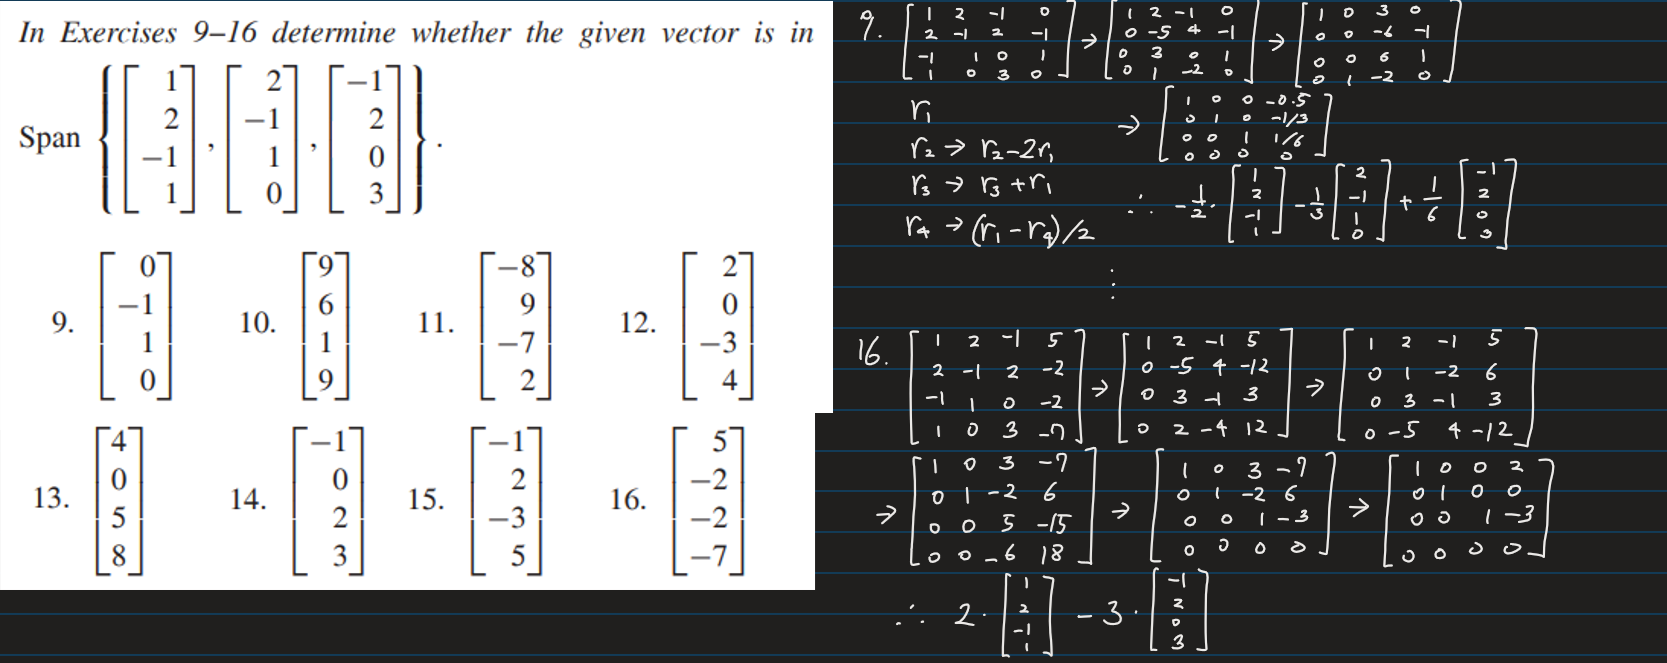 In Exercises 9–16 determine whether the given vector is in
Span { [1 2 −1 1], [2 −1 1 0], [−1 2 0 3] }.
9. [0 −1 1 0]
10. [9 6 1 9]
11. [−8 9 −7 2]
12. [2 0 −3 4]
13. [4 0 5 8]
14. [−1 0 2 3]
15. [−1 2 −3 5]
16. [5 −2 −2 −7]
9. [1 2 -1 0; 2 -1 2 -1; -1 1 0 1; 1 0 3 0] → [1 2 -1 0; 0 -5 4 -1; 0 3 0 1; 0 1 -2 0] → [1 0 3 0; 0 0 -6 -1; 0 0 6 1; 0 1 -2 0]
→ [1 0 0 -0.5; 0 1 0 -1/3; 0 0 1 1/6; 0 0 0 0]
r₁
r₂ → r₂-2r₁
r₃ → r₃+r₁
r₄ → (r₁-r₄)/2
∴ -1/2 · [1 2 -1 1] - 1/3 [2 -1 1 0] + 1/6 [-1 2 0 3]
⋮
16. [1 2 -1 5; 2 -1 2 -2; -1 1 0 -2; 1 0 3 -7] → [1 2 -1 5; 0 -5 4 -12; 0 3 -1 3; 0 2 -4 12] → [1 2 -1 5; 0 1 -2 6; 0 3 -1 3; 0 -5 4 -12]
→ [1 0 3 -7; 0 1 -2 6; 0 0 5 -15; 0 0 -6 18] → [1 0 3 -7; 0 1 -2 6; 0 0 1 -3; 0 0 0 0] → [1 0 0 2; 0 1 0 0; 0 0 1 -3; 0 0 0 0]
∴ 2 · [1 2 -1 1] - 3 · [-1 2 0 3]